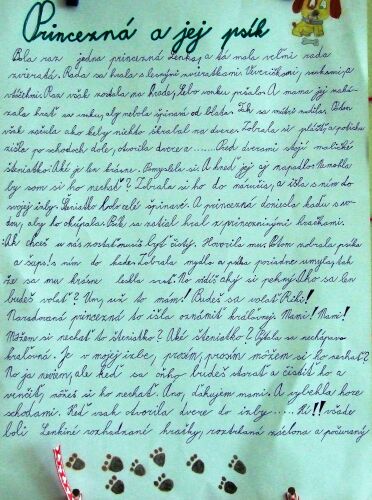 Princezná a jej psík
Bola raz jedna princezná Lenka, a tá mala veľmi rada
zvieratá. Rada sa hrala s lesnými zvieratkami. Veveričkami, srnkami, a
vtáčikmi. Raz však zostala na hrade, lebo vonku pršalo. A mama jej zaká-
zala hrať sa vonku, aby nebola špinavá od blata. Tak sa vnútri nudila. Potom
však začula ako keby niekto škrabal na dvere. Zobrala si plášť a potichu
zišla po schodoch dole, otvorila dvere a ...... Pred dverami stojí maličké
šteniatko. Aké je len krásne. Pomyslela si. A hneď jej aj napadlo. Nemohla
by som si ho nechať? Zobrala si ho do náručia, a išla s ním do
svojej izby. Šteniatko bolo celé špinavé. A princezná doniesla kaďu s vo-
dou, aby ho okúpala. Psík sa zatiaľ hral s princezninými hračkami.
Ak chceš u nás zostať musíš byť čistý. Hovorila mu. Potom zobrala psíka
a šups! s ním do kade. Zobrala mydlo a psíka poriadne umyla, tak
že sa mu krásne leskla srsť. No vidíš aký si pekný. Ako sa len
budeš volať? Um, už to mám! Budeš sa volať Riki!
Naradovaná princezná to išla oznámiť kráľovnej. Mami! Mami!
Môžem si nechať to šteniatko? Aké šteniatko? Pýtala sa nechápavo
kráľovná. Je v mojej izbe, prosím, prosím môžem si ho nechať?
No ja neviem, ale keď sa oňho budeš starať a čistiť ho a
venčiť, môžeš si ho nechať. Áno, ďakujem mami. A vybehla hore
schodami. Keď však otvorila dvere do izby ..... Ri!! všade
boli Lenkine rozhádzané hračky, roztrhaná záclona a počuraný